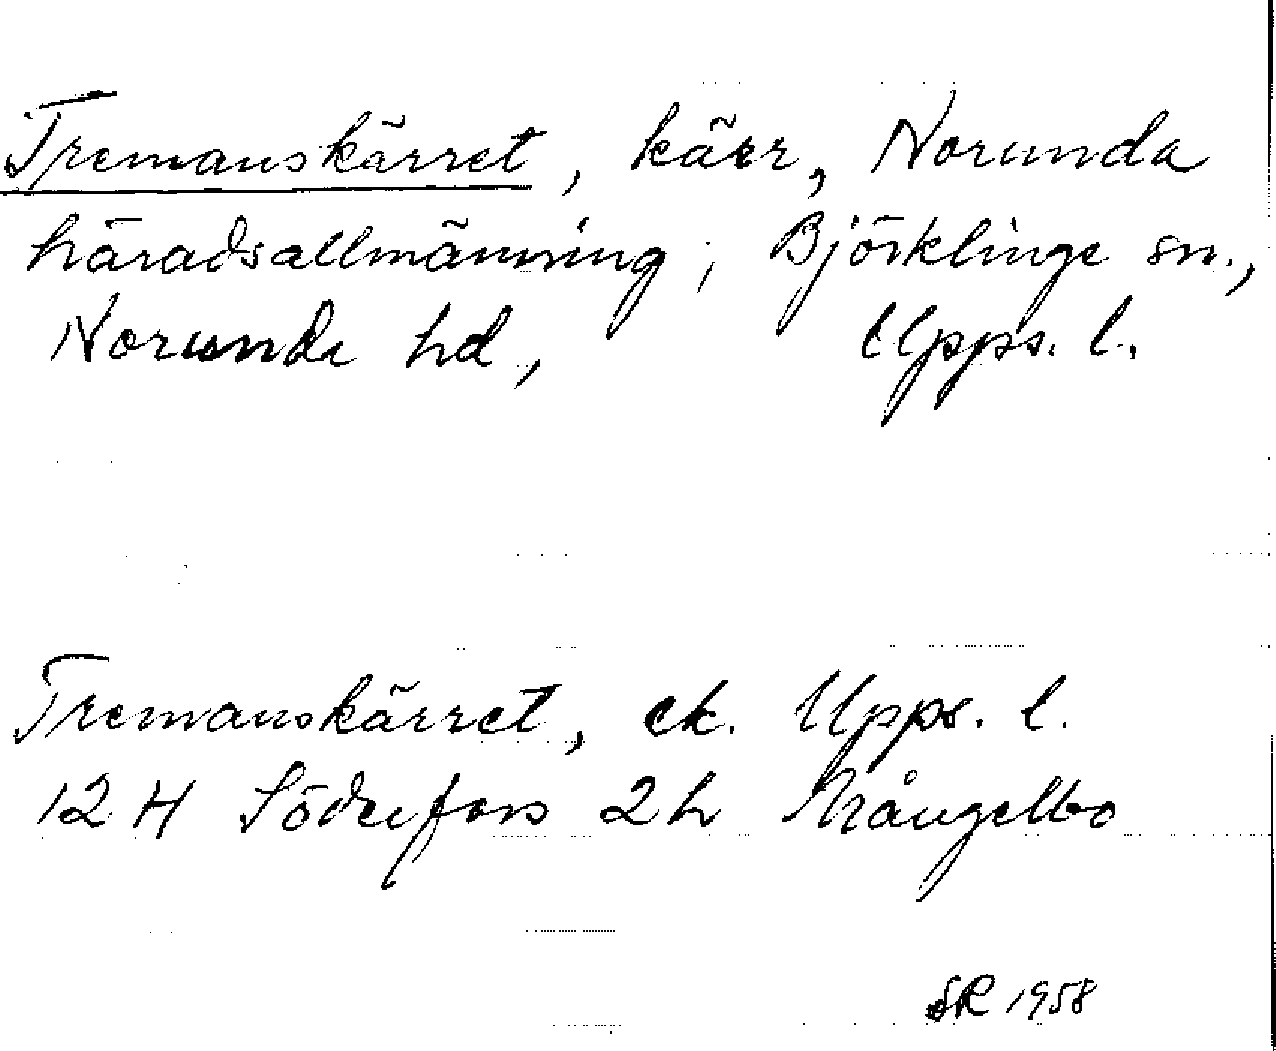 Tremanskärret, kärr, Norunda
häradsallmänning, Björklinge sn.,
Norunda hd, Upps. l.
Tremanskärret, ek. Upps. l.
12 H Söderfors 2h Mångelbo
SR 1958